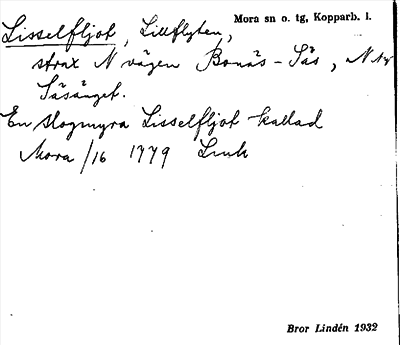 Mora sn o. tg, Kopparb. l.
Lisselfljot, Lillflyten,
strax N vägen Bonäs - Säs, N
Säsänget.
En skogmyra Lisselfljot kallad
Mora /16 1779 Link
Bror Lindén 1932